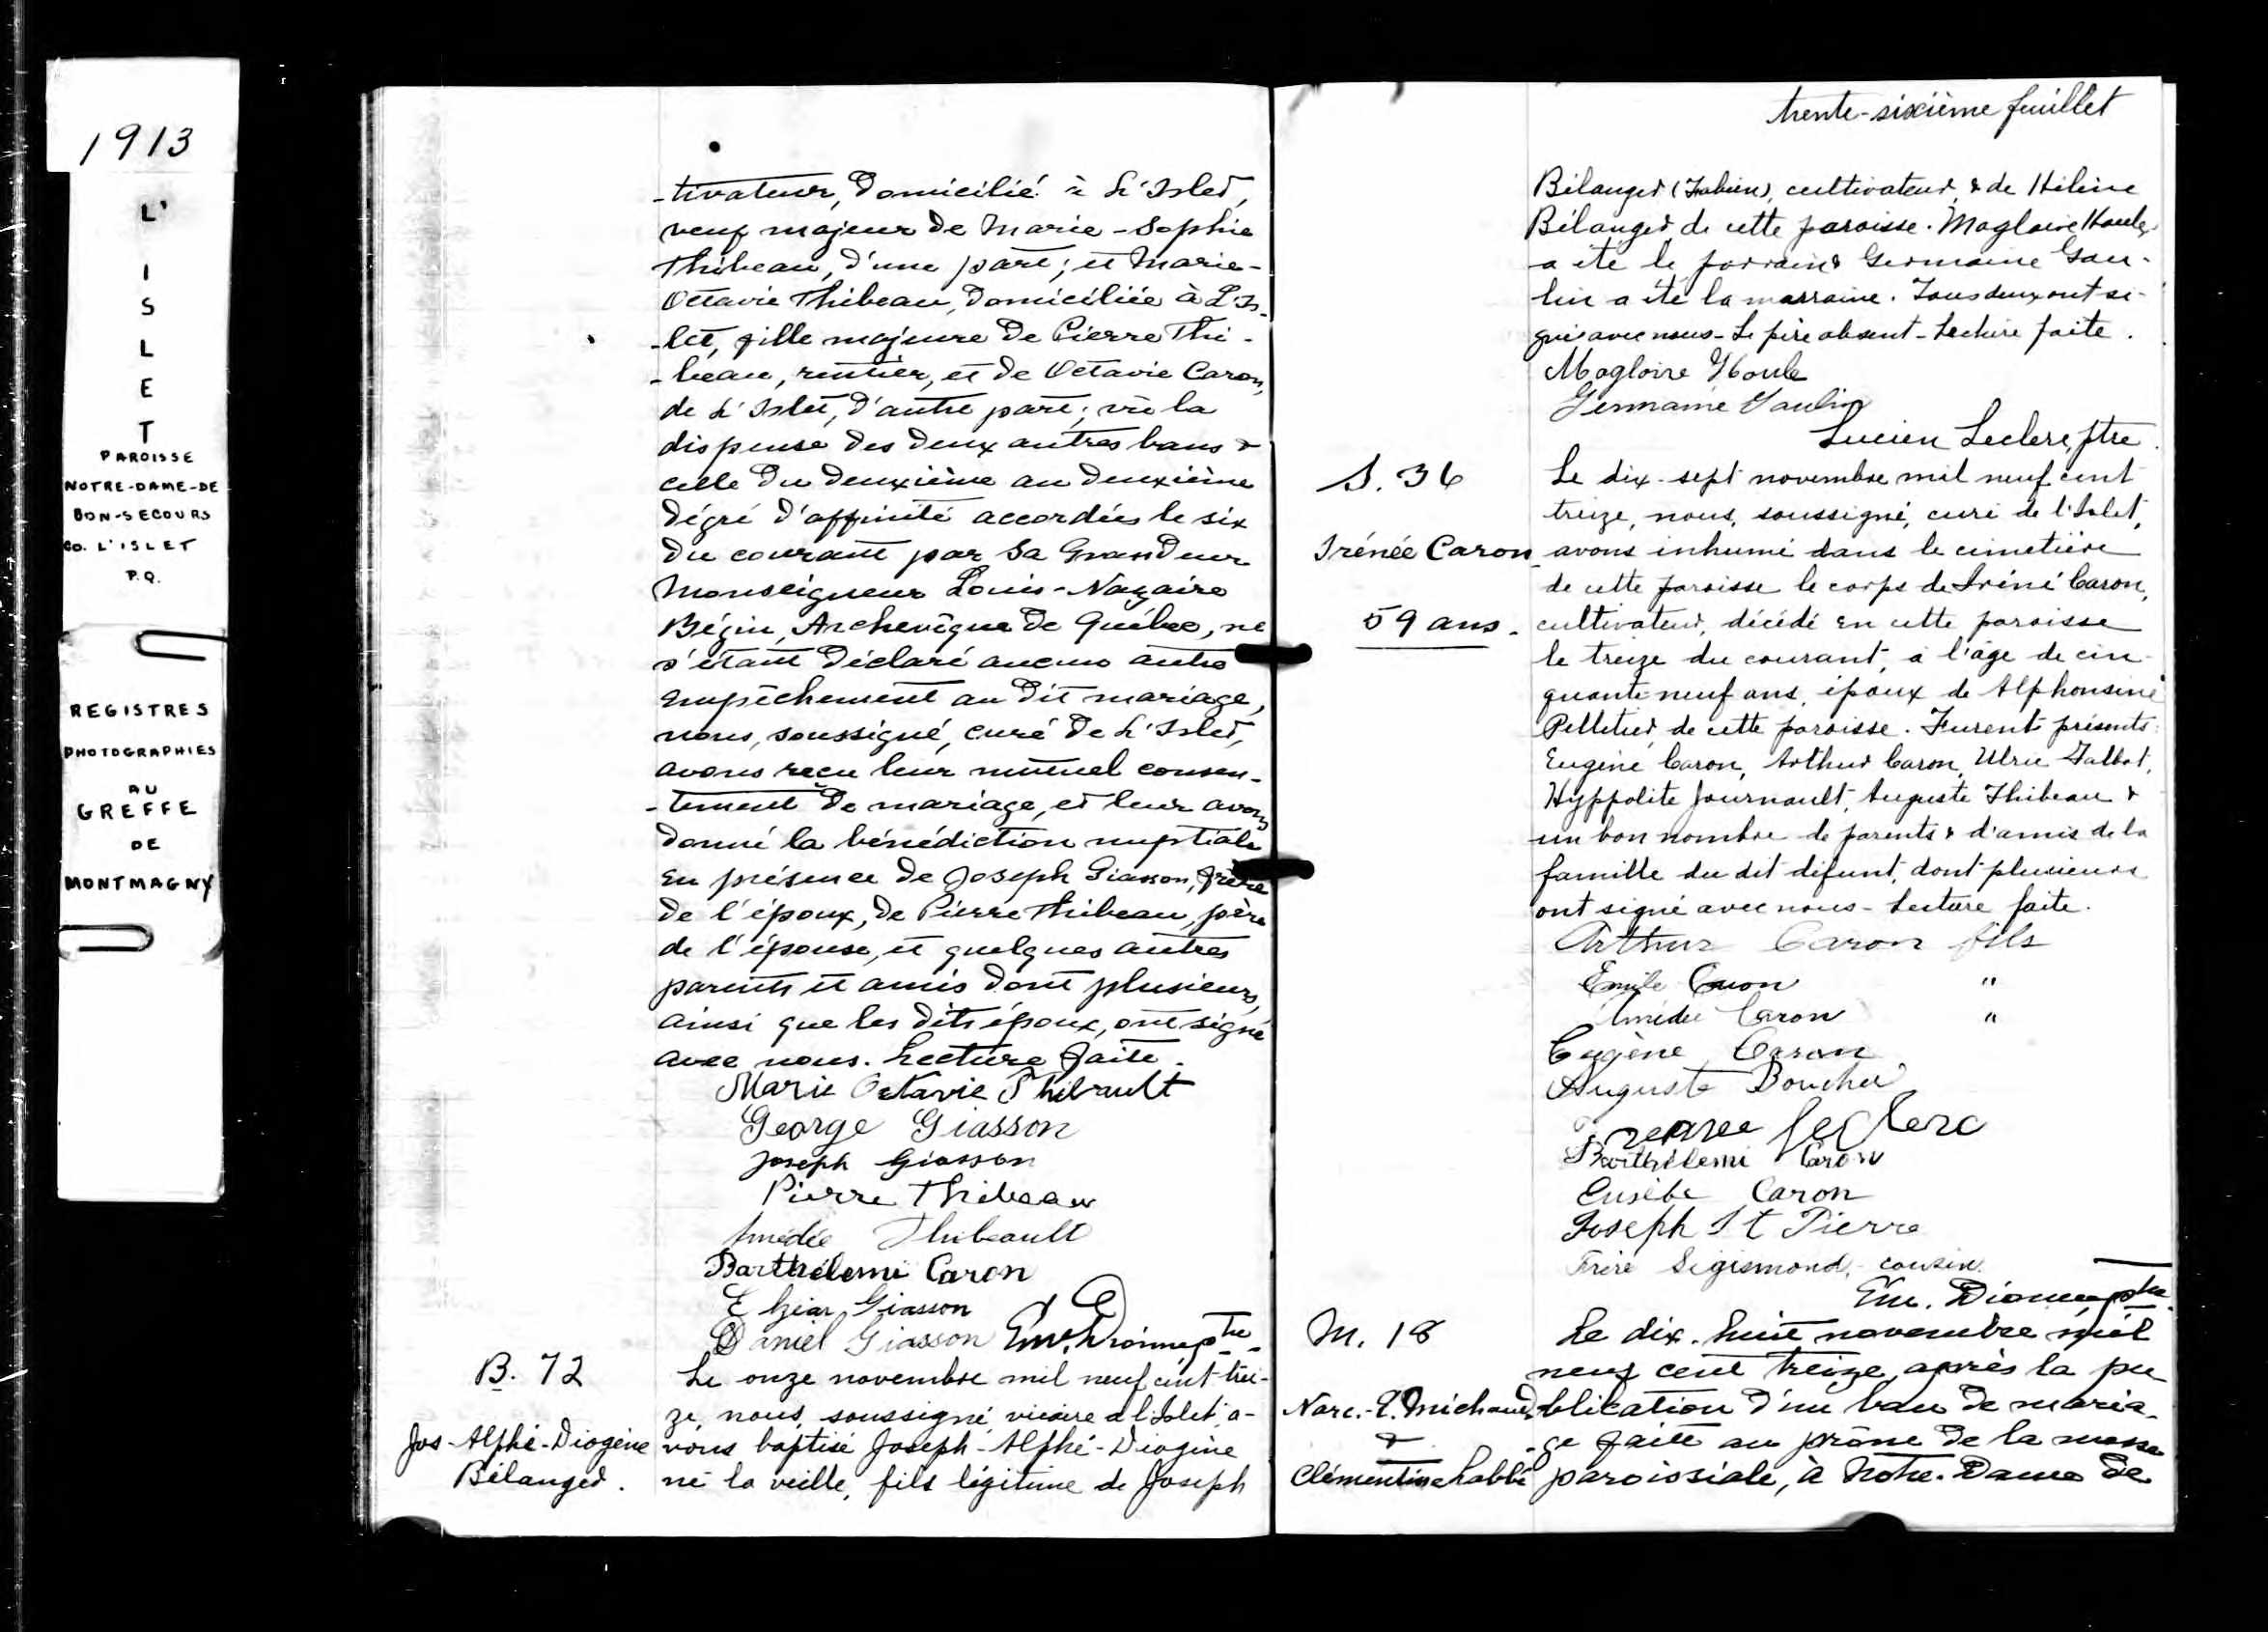 1913
L'
I
S
L
E
T
PAROISSE
NOTRE-DAME-DE
BON-SECOURS
CO. L'ISLET
P.Q.
REGISTRES
PHOTOGRAPHIES
AU
GREFFE
DE
MONTMAGNY
-tivateur, domicilié à L'Islet,
veuf majeur de Marie-Sophie
Thibeau, d'une part; et Marie-
Octavie Thibeau, domiciliée à L'Is-
-let, fille majeure de Pierre Thi-
-beau, rentier, et de Octavie Caron,
de L'Islet, d'autre part; vu la
dispense des deux autres bans &
celle du deuxième au deuxième
dégré d'affinité accordées le six
du courant par Sa Grandeur
Monseigneur Louis-Nazaire
Bégin, Archevêque de Québec, ne
s'étant déclaré aucun autre
empêchement au dit mariage,
nous, soussigné, curé de L'Islet,
avons reçu leur mutuel consen-
-tement de mariage, et leur avons
donné la bénédiction nuptiale
en présence de Joseph Giasson, frère
de l'époux, de Pierre Thibeau, père
de l'épouse, et quelques autres
parents et amis dont plusieurs,
ainsi que les dits époux, ont signé
avec nous. Lecture faite.
Marie Octavie Thibault
George Giasson
Joseph Giasson
Pierre Thibeau
Amédée Thibeault
Barthélemi Caron
Elzéar Giasson
Daniel Giasson Em. Dionne ptre
B. 72
Jos-Alphé-Diogène
Bélanger.
Le onze novembre mil neuf cent trei-
ze, nous, soussigné, vicaire à l'Islet, a-
vons baptisé Joseph-Alphé-Diogène
né la veille, fils légitime de Joseph
trente-sixième feuillet
Bélanger (Fabien), cultivateur, & de Hélène
Bélanger de cette paroisse. Magloire Houle
a été le parrain & Germaine Gau-
lin a été la marraine. Tous deux ont si-
gné avec nous - Le père absent - Lecture faite.
Magloire Houle
Germaine Gaulin
Lucien Leclerc, ptre.
S. 36
Irénée Caron
59 ans.
Le dix-sept novembre mil neuf cent
treize, nous, soussigné, curé de l'Islet,
avons inhumé dans le cimetière
de cette paroisse le corps de Iréné Caron,
cultivateur, décédé en cette paroisse
le treize du courant, à l'âge de cin-
quante-neuf ans, époux de Alphonsine
Pelletier, de cette paroisse. Furent présents:
Eugène Caron, Arthur Caron, Ulric Talbot,
Hyppolite Journault, Auguste Thibeau &
un bon nombre de parents & d'amis de la
famille du dit défunt, dont plusieurs
ont signé avec nous - Lecture faite.
Arthur Caron fils
Emile Caron "
Amédée Caron "
Eugène Caron
Auguste Boucher
Leclerc
Barthélemi Caron
Eusèbe Caron
Joseph St Pierre
Frère Sigismond, - cousin.
Em. Dionne, ptre.
M. 18
Narc.-E. Michaud
&
Clémentine Labbé
Le dix-huit novembre mil
neuf cent treize, après la pu
blication d'un ban de maria-
-ge faite au prône de la messe
paroissiale, à Notre-Dame de